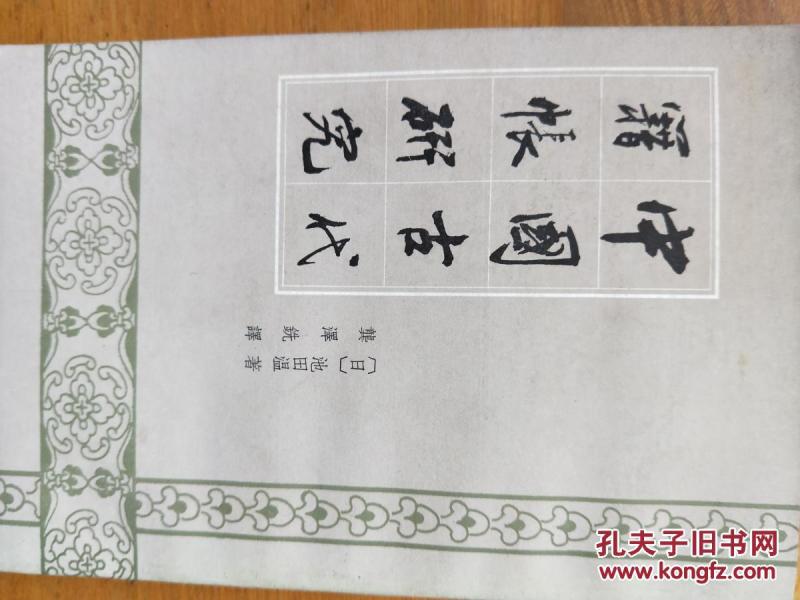 中國古代
籍帳研究
〔日〕池田溫 著
龔澤銑 譯
孔夫子旧书网
www.kongfz.com